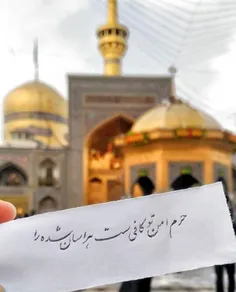 حرم امن تو کافی‌ست هراسان شده را